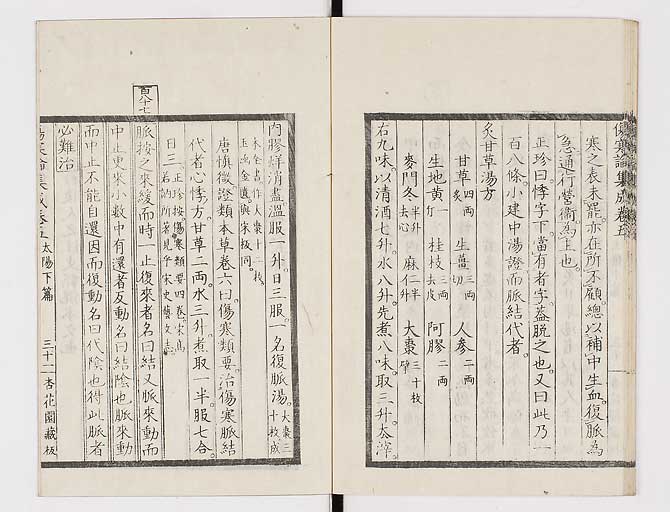 傷寒論集成卷五
寒之表未罷亦在所不顧總以補中生血復脈為
急通行營衞為主也
正珍曰悸字下當有者字蓋脫之也又曰此乃一
百八條小建中湯證而脈結代者
炙甘草湯方
甘草四両炙 生薑三両切 人参二両
生地黄一斤 桂枝三両去皮 阿膠二両
麥門冬半升去心 麻仁半升 大棗三十枚擘
右九味以清酒七升水八升先煮八味取三升去滓
内膠烊消盡溫服一升日三服一名復脈湯大棗三十枚成
本全書作大棗十二枚
玉函金匱與宋板同
唐慎微證類本草卷六曰傷寒類要治傷寒脈結
代者心悸方甘草二両水三升煮取一半服七合
日三正珍按傷寒類要四卷宋髙
若訥所著見乎宋史藝文志
百八十七
脈按之來緩而時一止復來者名曰結又脈來動而
中止更來小數中有還者反動名曰結陰也脈來動
而中止不能自還因而復動名曰代陰也得此脈者
必難治
傷寒論集成卷五 太陽下篇 三十二 杏花園藏板